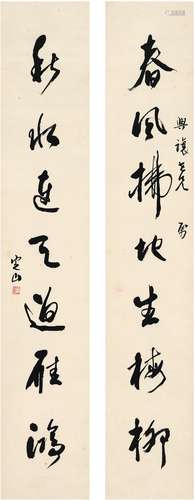 春風拂地生梅柳
興讓吾兄 屬
秋水連天過雁鴻
定山